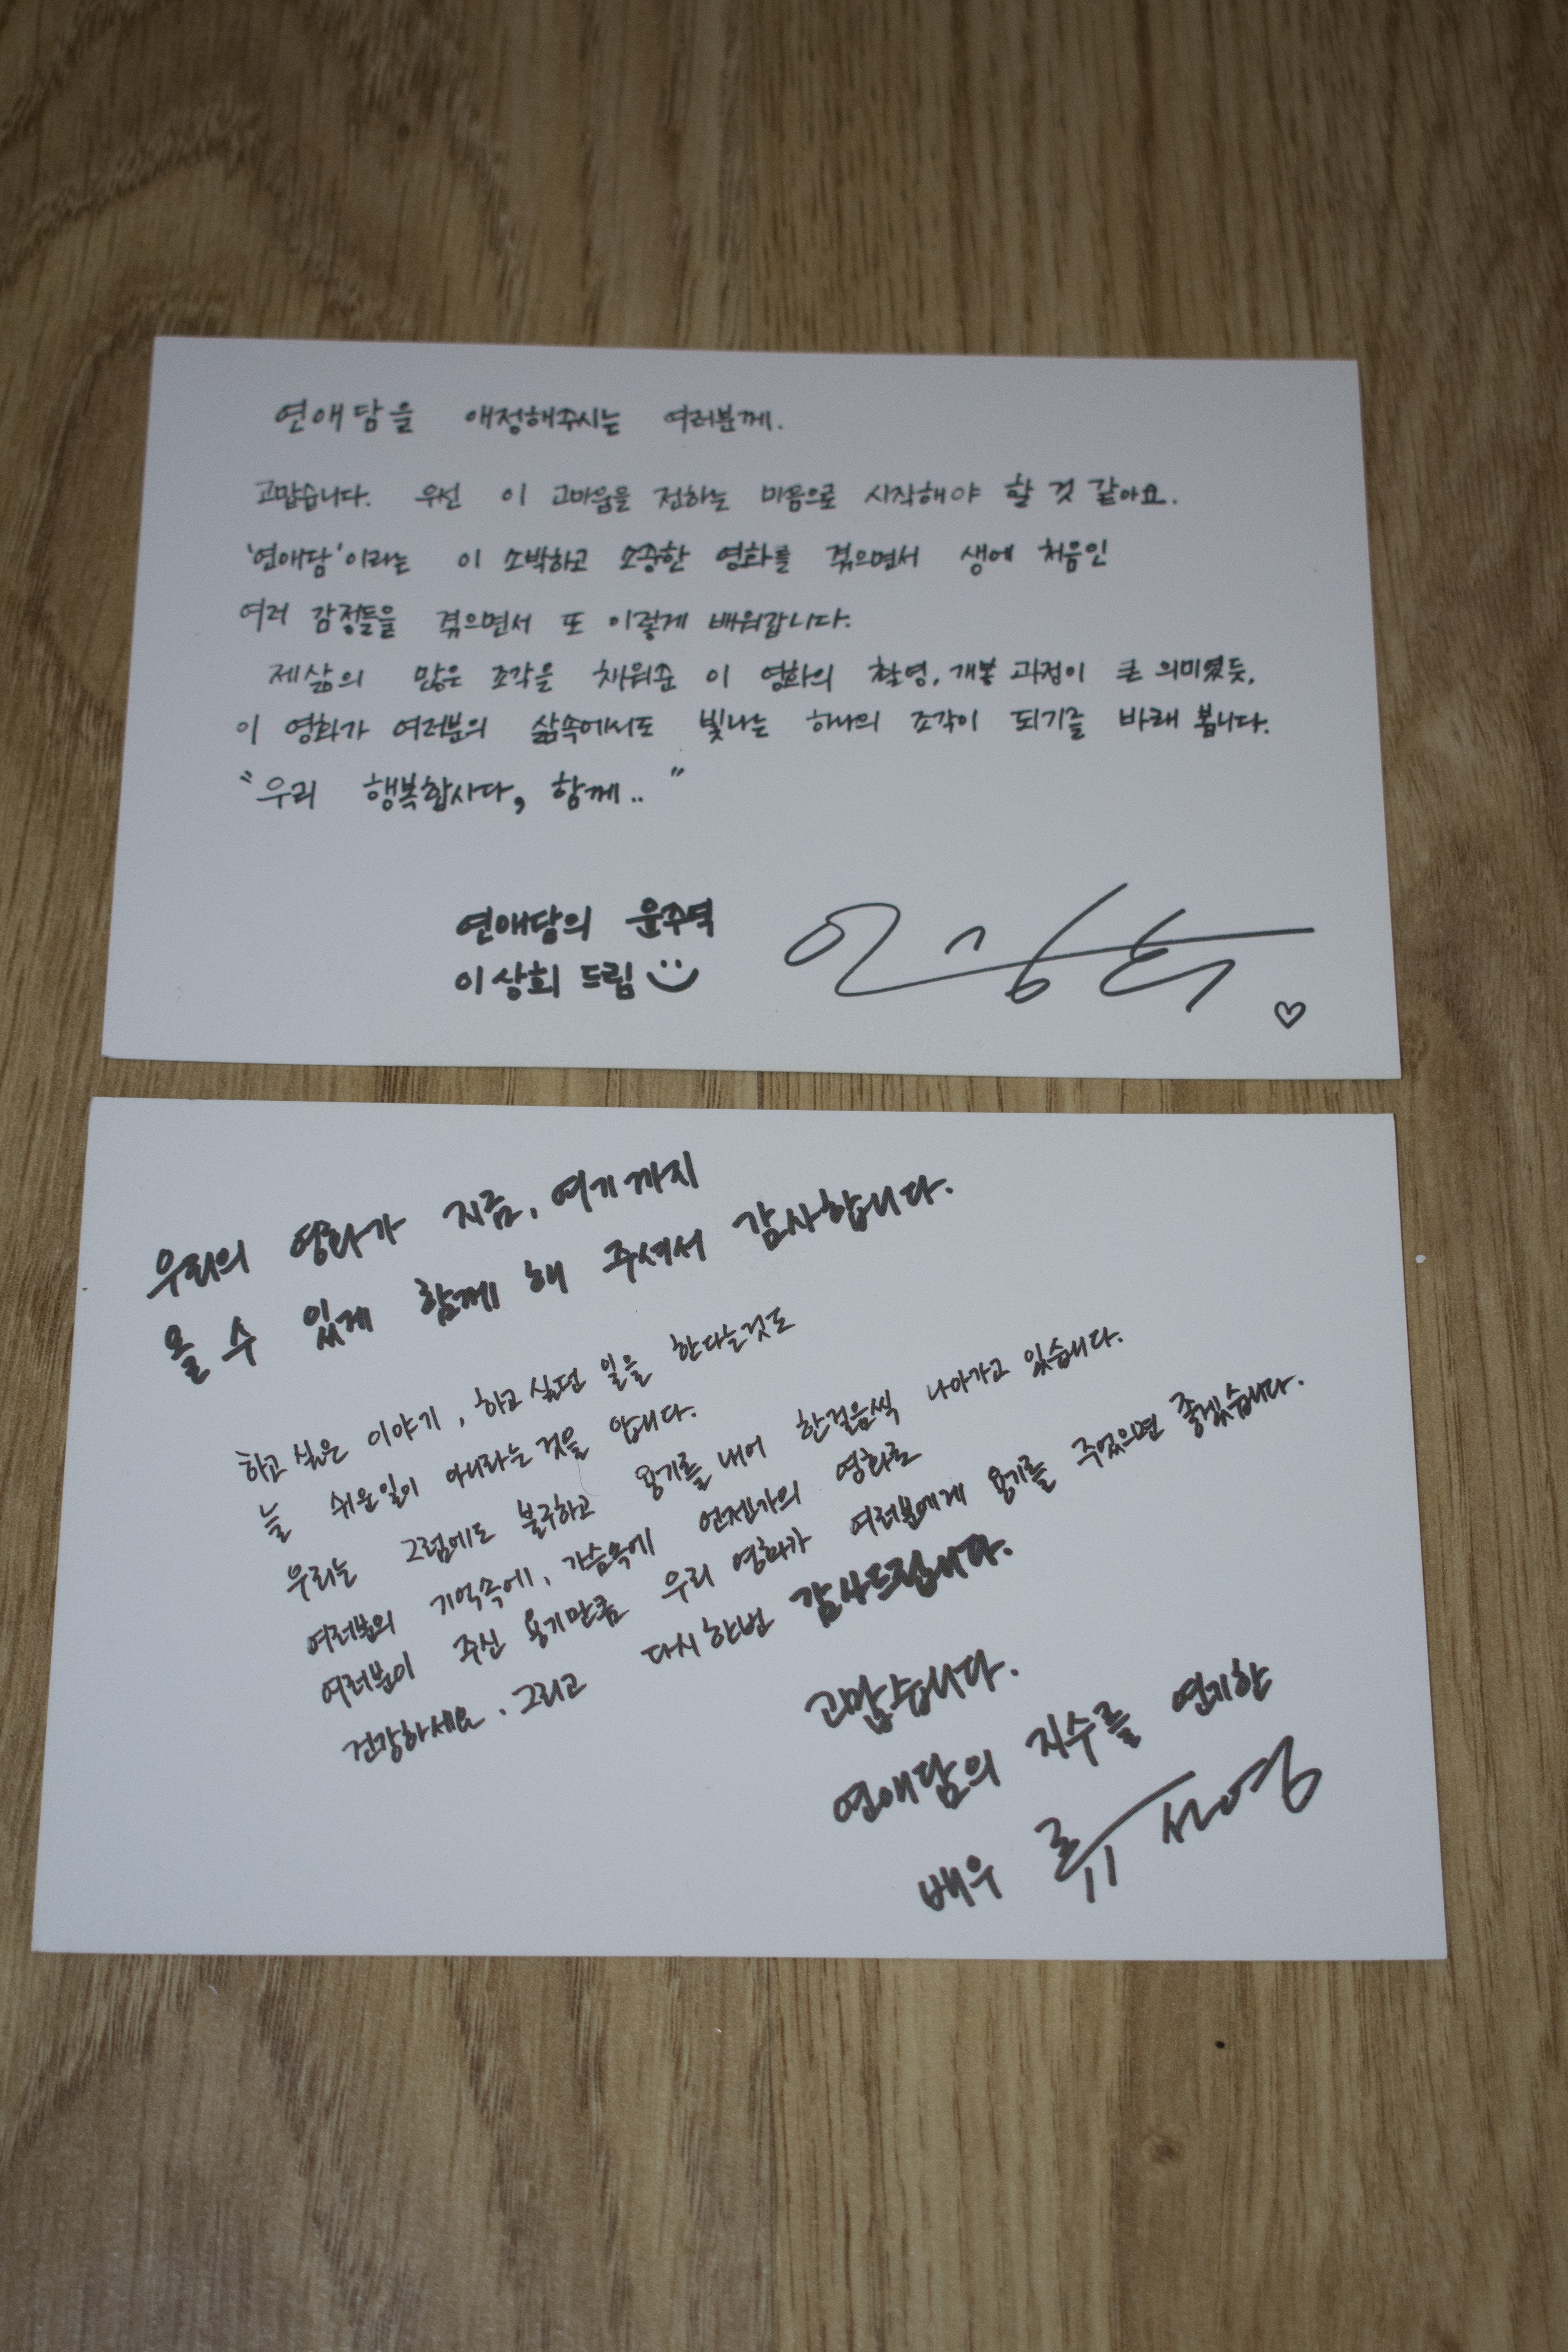 연애담을 애정해주시는 여러분께.
고맙습니다. 우선 이 고마움을 전하는 마음으로 시작해야 할 것 같아요.
'연애담'이라는 이 소박하고 소중한 영화를 겪으면서 생에 처음인
여러 감정들을 겪으면서 또 이렇게 배워갑니다.
제삶의 많은 조각을 채워준 이 영화의 촬영, 개봉 과정이 큰 의미였듯,
이 영화가 여러분의 삶속에서도 빛나는 하나의 조각이 되기를 바래 봅니다.
"우리 행복합시다, 함께.."
연애담의 윤주역
이상희 드림
이상희
우리의 영화가 지금, 여기까지
올 수 있게 함께 해 주셔서 감사합니다.
하고 싶은 이야기, 하고 싶던 일을 한다는것도
늘 쉬운일이 아니라는 것을 압니다.
우리는 그럼에도 불구하고 용기를 내어 한걸음씩 나아가고 있습니다.
여러분의 기억속에, 가슴속에 언젠가의 영화로
여러분이 주신 용기만큼 우리 영화가 여러분에게 용기를 주었으면 좋겠습니다.
건강하세요. 그리고 다시한번 감사드립니다.
고맙습니다.
연애담의 지수를 연기한
배우 류선영